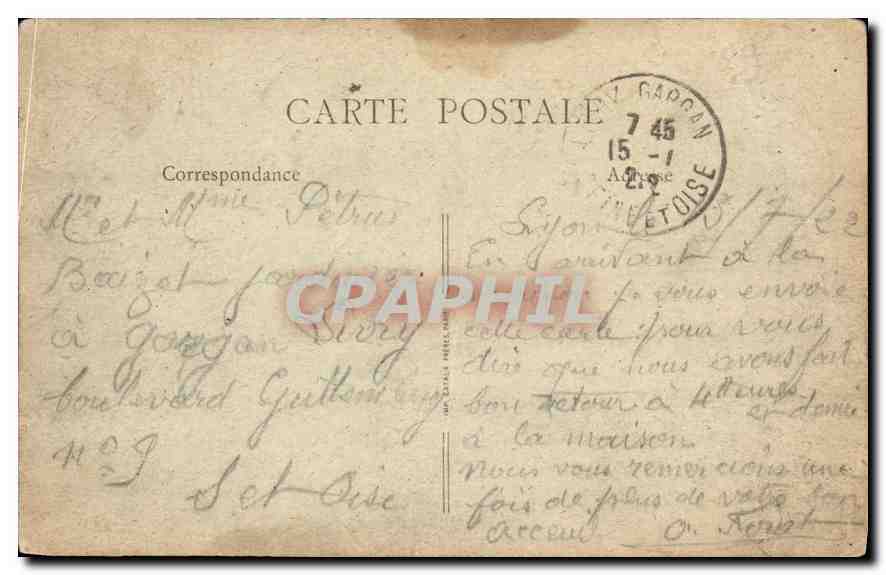 CARTE POSTALE
GARGAN
7 45
15 -7
22
ET OISE
Correspondance
Adresse
Mr et Mme Pétrus
Baizet
à Gargan Livry
boulevard Guillemeny
no 9
S et Oise
IMP. CATALA FRÈRES, PARIS
Lyon 7/22
En arivant à la
je vous envoie
cette carte pour vous
dire que nous avons fait
bon retour à 4 heures
et demie
à la maison
nous vous remercions une
fois de plus de votre bon
acceuil
CPAPHIL